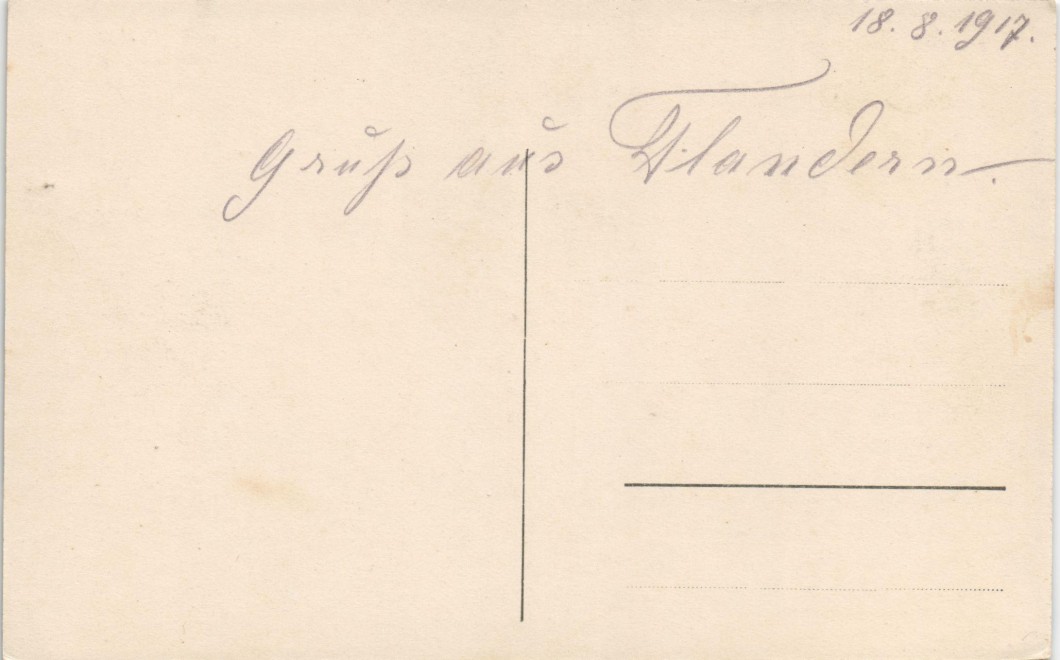 18. 8. 1917.
Gruß aus Flandern.